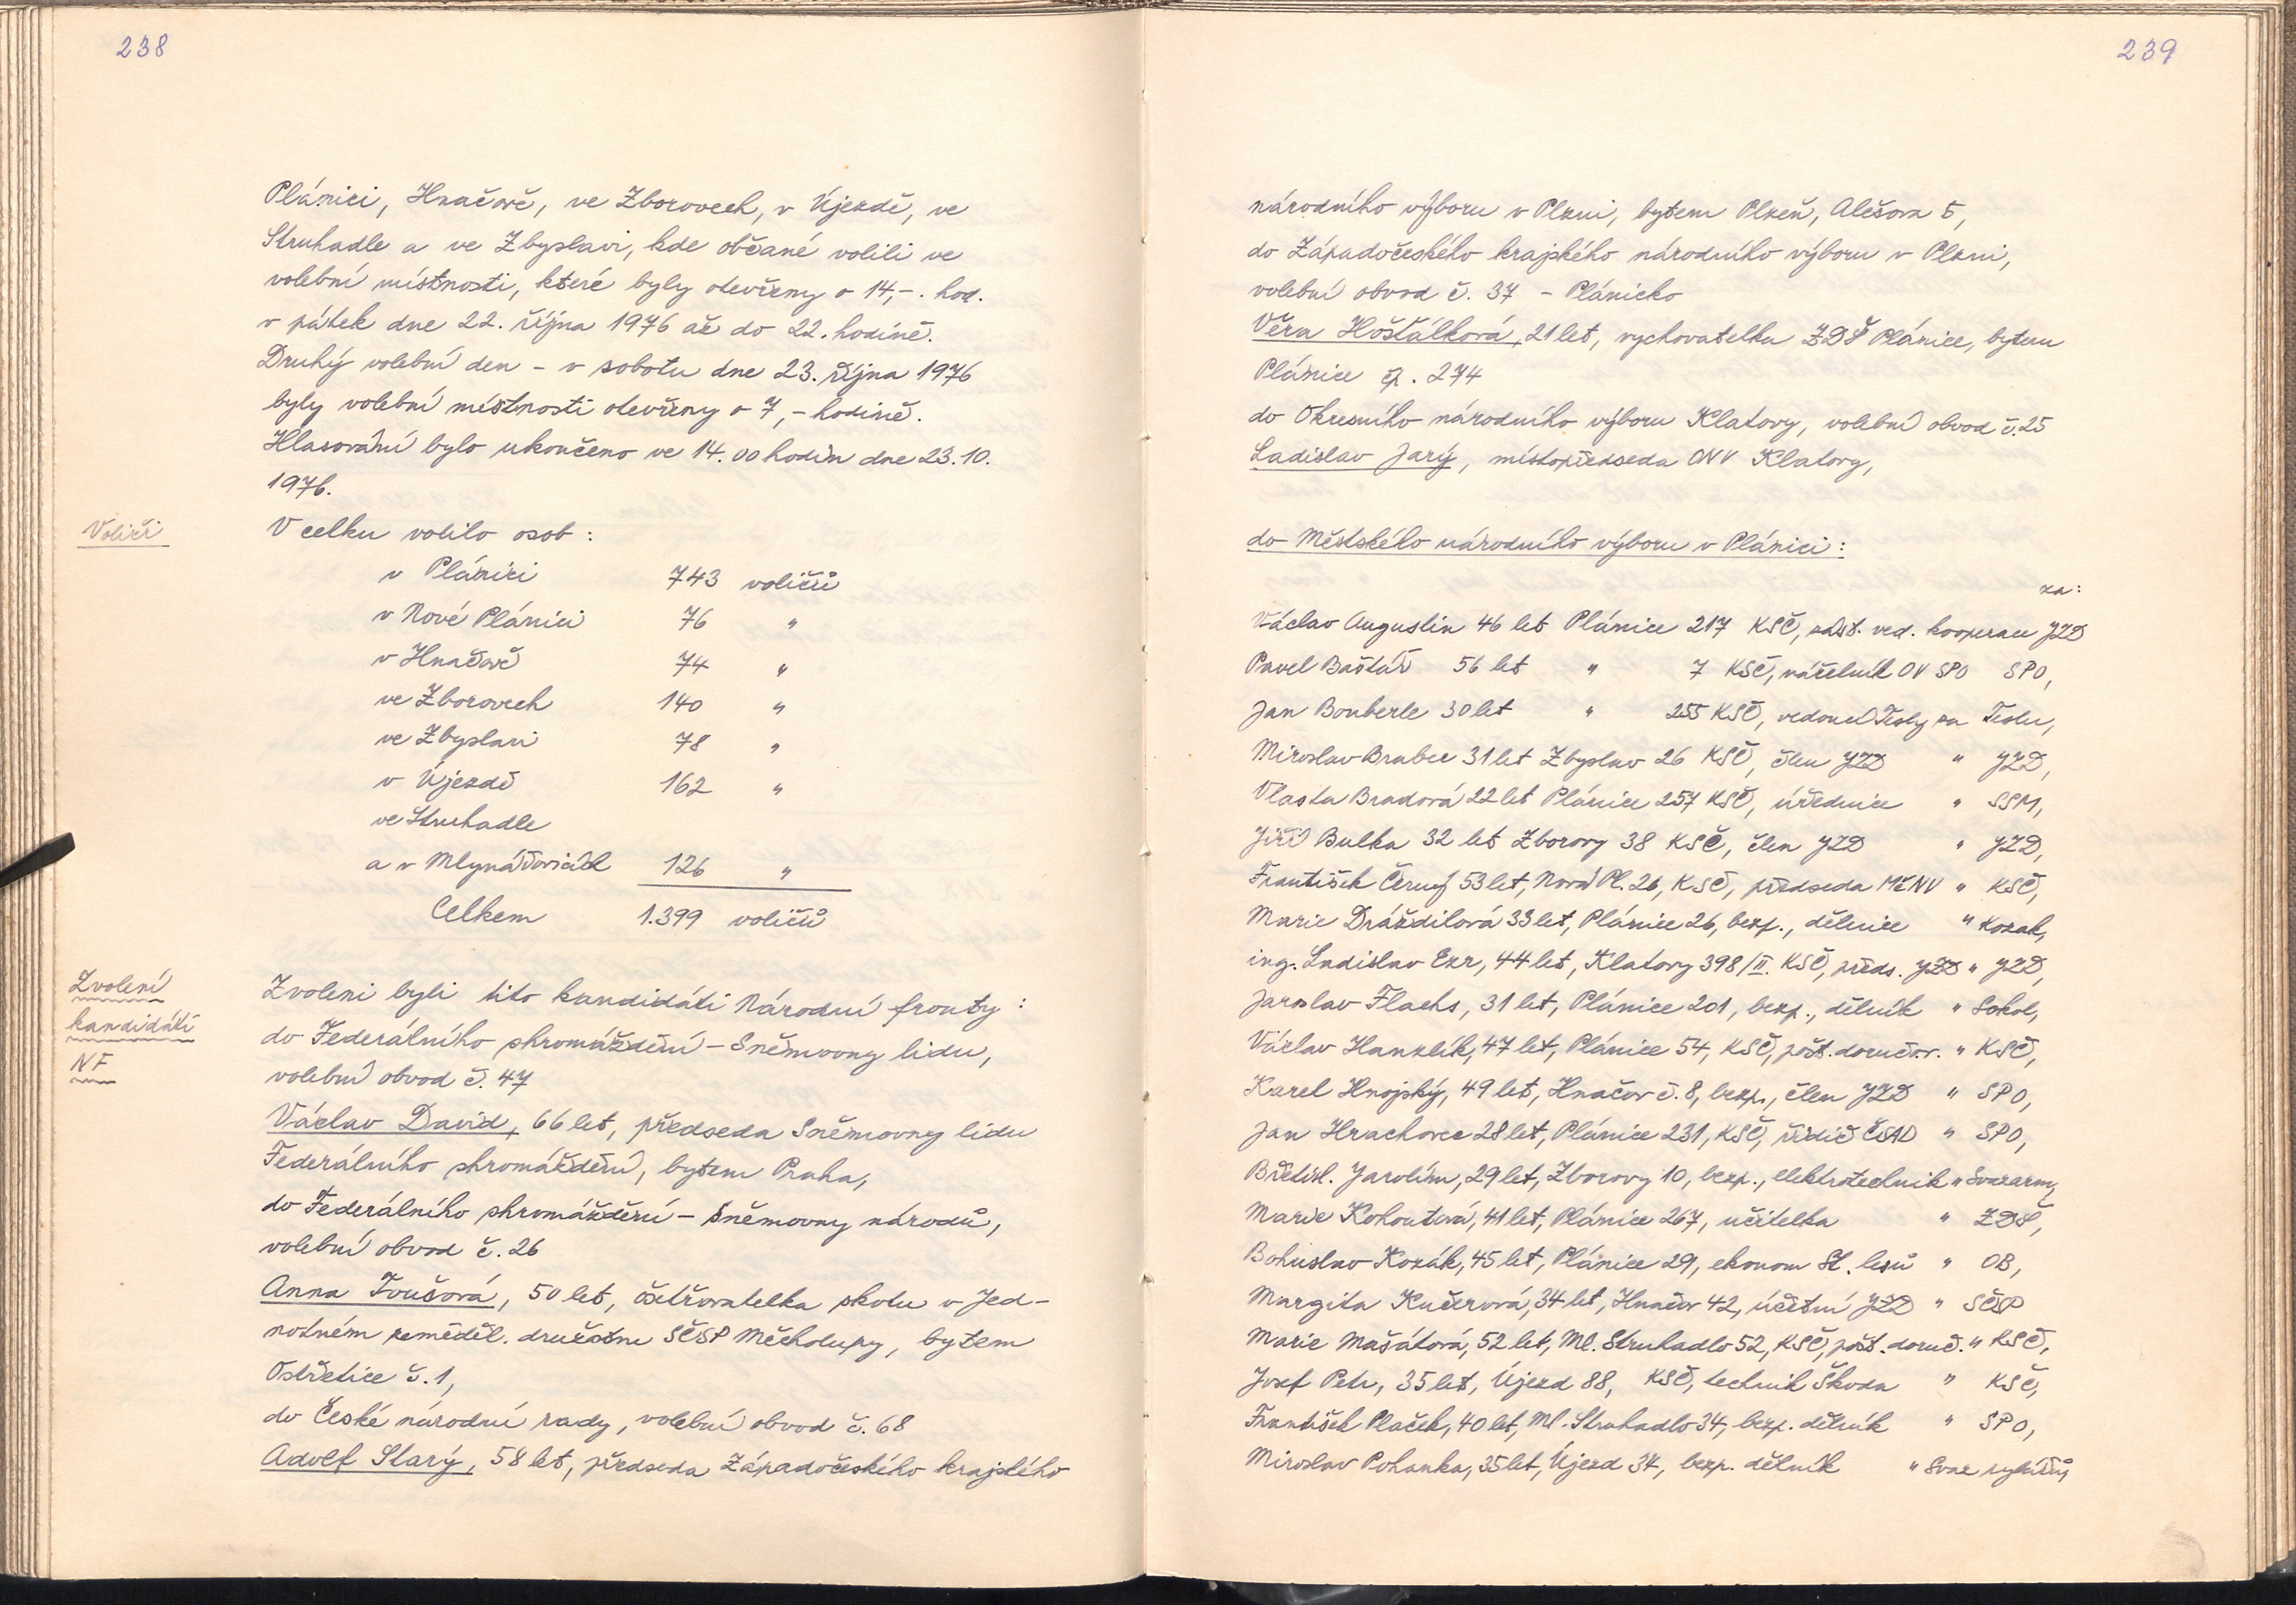 238
Plánici, Hnačově, ve Zborovech, v Újezdě, ve
Struhadle a ve Zbyslavi, kde občané volili ve
volební místnosti, které byly otevřeny o 14,-. hod.
v pátek dne 22. října 1976 až do 22. hodině.
Druhý volební den - v sobotu dne 23. října 1976
byly volební místnosti otevřeny o 7,- hodině.
Hlasování bylo ukončeno ve 14.00 hodin dne 23.10.
1976.
Voliči
V celku volilo osob:
v Plánici 743 voličů
v Nové Plánici 76 "
v Hnačově 74 "
ve Zborovech 140 "
ve Zbyslavi 78 "
v Újezdě 162 "
ve Struhadle
a v Mlynářovicích 126 "
Celkem 1.399 voličů
Zvolení
kandidáti
NF
Zvoleni byli tito kandidáti Národní fronty:
do Federálního shromáždění - Sněmovny lidu,
volební obvod č. 47
Václav David, 66 let, předseda Sněmovny lidu
Federálního shromáždění, bytem Praha,
do Federálního shromáždění - Sněmovny národů,
volební obvod č. 26
Anna Toušová, 50 let, ošetřovatelka skotu v Jed-
notném zeměděl. družstvu SČSP Měcholupy, bytem
Ostřetice č. 1,
do České národní rady, volební obvod č. 68
Adolf Starý, 58 let, předseda Západočeského krajského
239
národního výboru v Plzni, bytem Plzeň, Alešova 5,
do Západočeského krajského národního výboru v Plzni,
volební obvod č. 37 - Plánicko
Věra Hošťálková, 21 let, vychovatelka ZDŠ Plánice, bytem
Plánice čp. 274
do Okresního národního výboru Klatovy, volební obvod č. 25
Ladislav Jarý, místopředseda ONV Klatovy,
do Městského národního výboru v Plánici:
za:
Václav Augustin 46 let Plánice 217 KSČ, zást. ved. kooperace JZD
Pavel Baštář 56 let " 7 KSČ, náčelník OV SPO SPO,
Jan Bouberle 30 let " 255 KSČ, vedoucí Tesly za Teslu,
Miroslav Brabec 31 let Zbyslav 26 KSČ, člen JZD " JZD,
Vlasta Bradová 22 let Plánice 257 KSČ, úřednice " SSM,
Jiří Bulka 32 let Zborovy 38 KSČ, člen JZD " JZD,
František Černý 53 let, Nová Pl. 26, KSČ, předseda MěNV " KSČ,
Marie Drážďilová 33 let, Plánice 26, bezp., dělnice " Kozak,
ing. Ladislav Exr, 44 let, Klatovy 398/II. KSČ, předs. JZD " JZD,
Jaroslav Flachs, 31 let, Plánice 201, bezp., dělník " Sokol,
Václav Hanzlík, 47 let, Plánice 54, KSČ, pošt. doručov. " KSČ,
Karel Hnojský, 49 let, Hnačov č. 8, bezp., člen JZD " SPO,
Jan Hrachovec 28 let, Plánice 231, KSČ, řidič ČSAD " SPO,
Břetisl. Jarolím, 29 let, Zborovy 10, bezp., elektrotechnik " Svazarm,
Marie Kohoutová, 41 let, Plánice 267, učitelka " ZDŠ,
Bohuslav Kozák, 45 let, Plánice 29, ekonom St. lesů " OB,
Margita Kučerová, 34 let, Hnačov 42, účetní JZD " SČSP
Marie Mašátová, 52 let, Ml. Struhadlo 52, KSČ, pošt. doruč. " KSČ,
Josef Petr, 35 let, Újezd 88, KSČ, technik Škoda " KSČ,
František Plaček, 40 let, Ml. Struhadlo 34, bezp. dělník " SPO,
Miroslav Pohanka, 35 let, Újezd 34, bezp. dělník " Svaz rybářů,